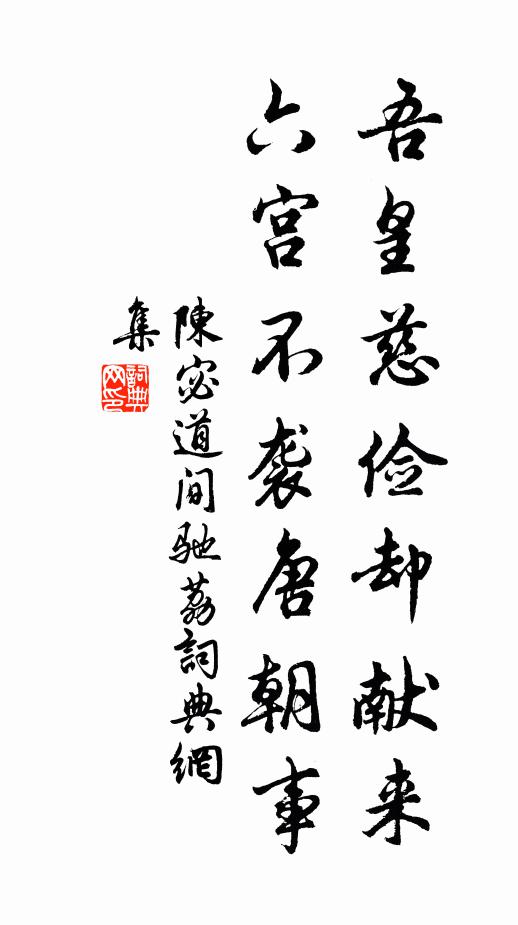 吾皇慈俭却献来
六宫不袭唐朝事
陳宓道间馳荔詞典網
集
詞典
网印